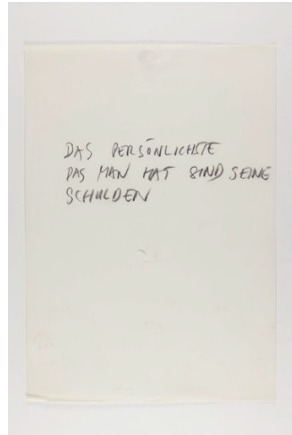 DAS PERSÖNLICHSTE
DAS MAN HAT SIND SEINE
SCHULDEN